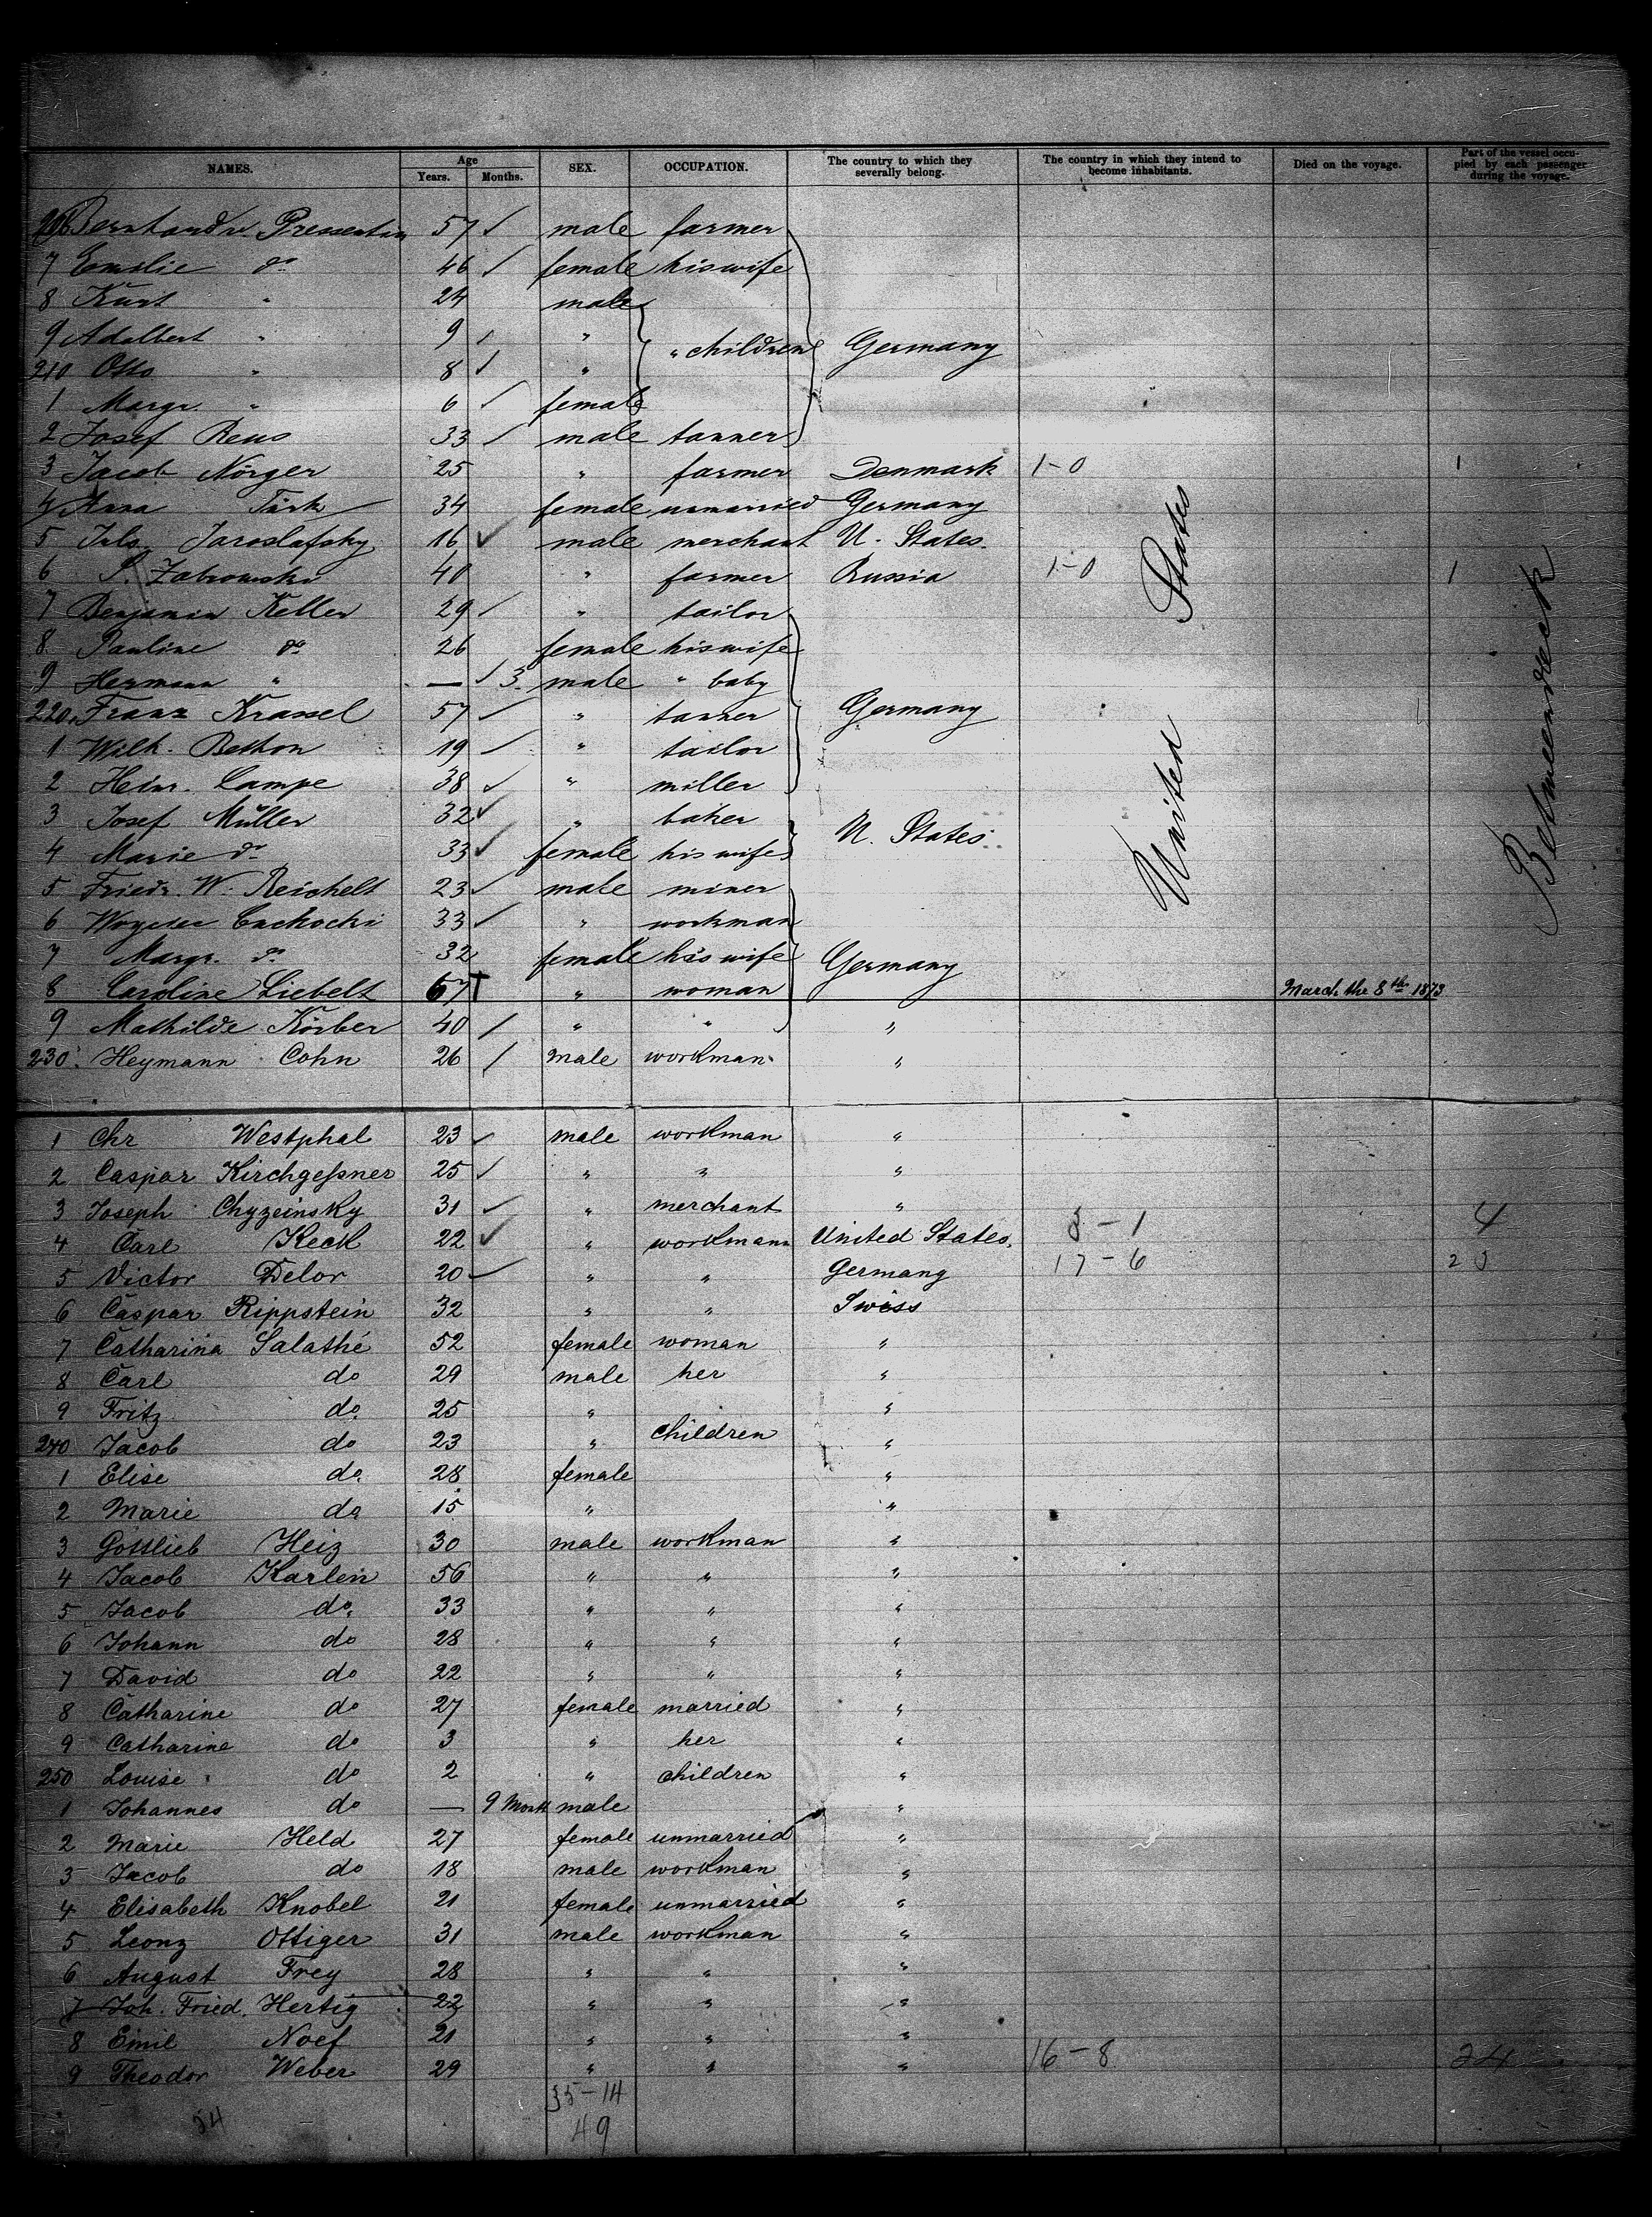 NAMES. Age Years. Months. SEX. OCCUPATION. The country to which they severally belong. The country in which they intend to become inhabitants. Died on the voyage. Part of the vessel occupied by each passenger during the voyage.
206 Bernhard v. Pressentin 57 ✓ male farmer
7 Emilie do 46 ✓ female his wife
8 Kurt " 24 male
9 Adalbert " 9 ✓ "
210 Otto " 8 ✓ " " children Germany
1 Margr. " 6 ✓ female
2 Josef Reus 33 ✓ male tanner
3 Jacob Nörger 25 " farmer Denmark 1-0 1
4 Anna Türk 34 female unmarried Germany
5 Jaroslafsky 16 ✓ male merchant U. States
6 S. Zabrowski 40 " farmer Russia 1-0 1
7 Benjamin Keller 29 ✓ " tailor
8 Pauline do 26 female his wife
9 Hermann " — ✓ 3 male " baby
220. Franz Krassel 57 ✓ " tanner Germany
1 Wilh. Bethon 19 ✓ " tailor
2 Heinr. Lampe 38 ✓ " miller
3 Josef Müller 32 ✓ " baker
4 Marie do 33 ✓ female his wife U. States
5 Friedr. W. Reichelt 23 ✓ male miner
6 33 ✓ " workman
7 Margr. do 32 female his wife Germany
8 Caroline Liebelt 67 † " woman March the 8th 1873
9 Mathilde Körber 40 ✓ " " "
230. Heymann Cohn 26 ✓ male workman "
United States
Betweendeck
1 Chr Westphal 23 ✓ male workman "
2 Caspar Kirchgeßner 25 ✓ " " "
3 Joseph Chyzeinsky 31 ✓ " merchant "
4 Carl Keck 22 ✓ " workmann United States. 3-1 4
5 Victor Delor 20 ✓ " " Germany 17-6 23
6 Caspar Rippstein 32 " " Swiss
7 Catharina Salathé 52 female woman "
8 Carl do 29 male her "
9 Fritz do 25 " "
240 Jacob do 23 " children "
1 Elise do 28 female "
2 Marie do 15 " "
3 Gottlieb Heiz 30 male workman "
4 Jacob Karlen 56 " " "
5 Jacob do 33 " " "
6 Johann do 28 " " "
7 David do 22 " " "
8 Catharine do 27 female married "
9 Catharine do 3 " her "
250 Louise do 2 " children "
1 Johannes do — 9 Month male "
2 Marie Held 27 female unmarried "
3 Jacob do 18 male workman "
4 Elisabeth Knobel 21 female unmarried "
5 Leonz Ottiger 31 male workman "
6 August Frey 28 " " "
7 Joh. Fried. Hertig 22 " " "
8 Emil Noef 21 " " "
9 Theodor Weber 29 " " " 16-8 24
35-14
54 49